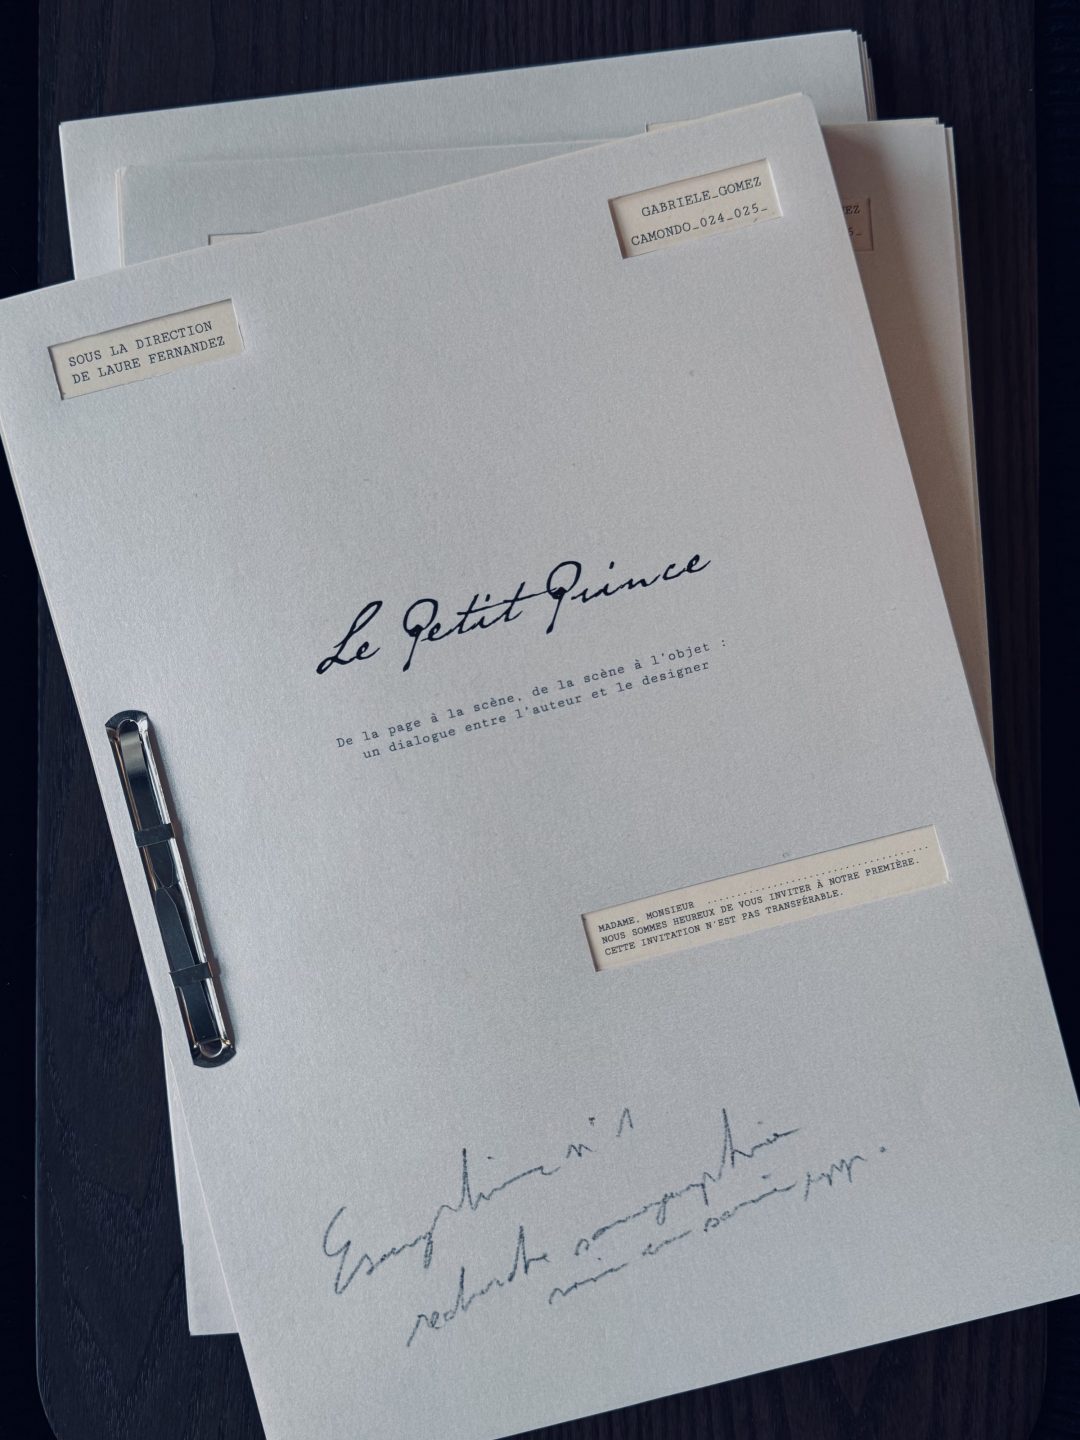 GABRIELE_GOMEZ
CAMONDO_024_025_
EZ
5_
SOUS LA DIRECTION
DE LAURE FERNANDEZ
Le Petit Prince
De la page à la scène, de la scène à l'objet :
un dialogue entre l'auteur et le designer
MADAME, MONSIEUR ........................................
NOUS SOMMES HEUREUX DE VOUS INVITER À NOTRE PREMIÈRE.
CETTE INVITATION N'EST PAS TRANSFÉRABLE.
n°1
recherche scénographie